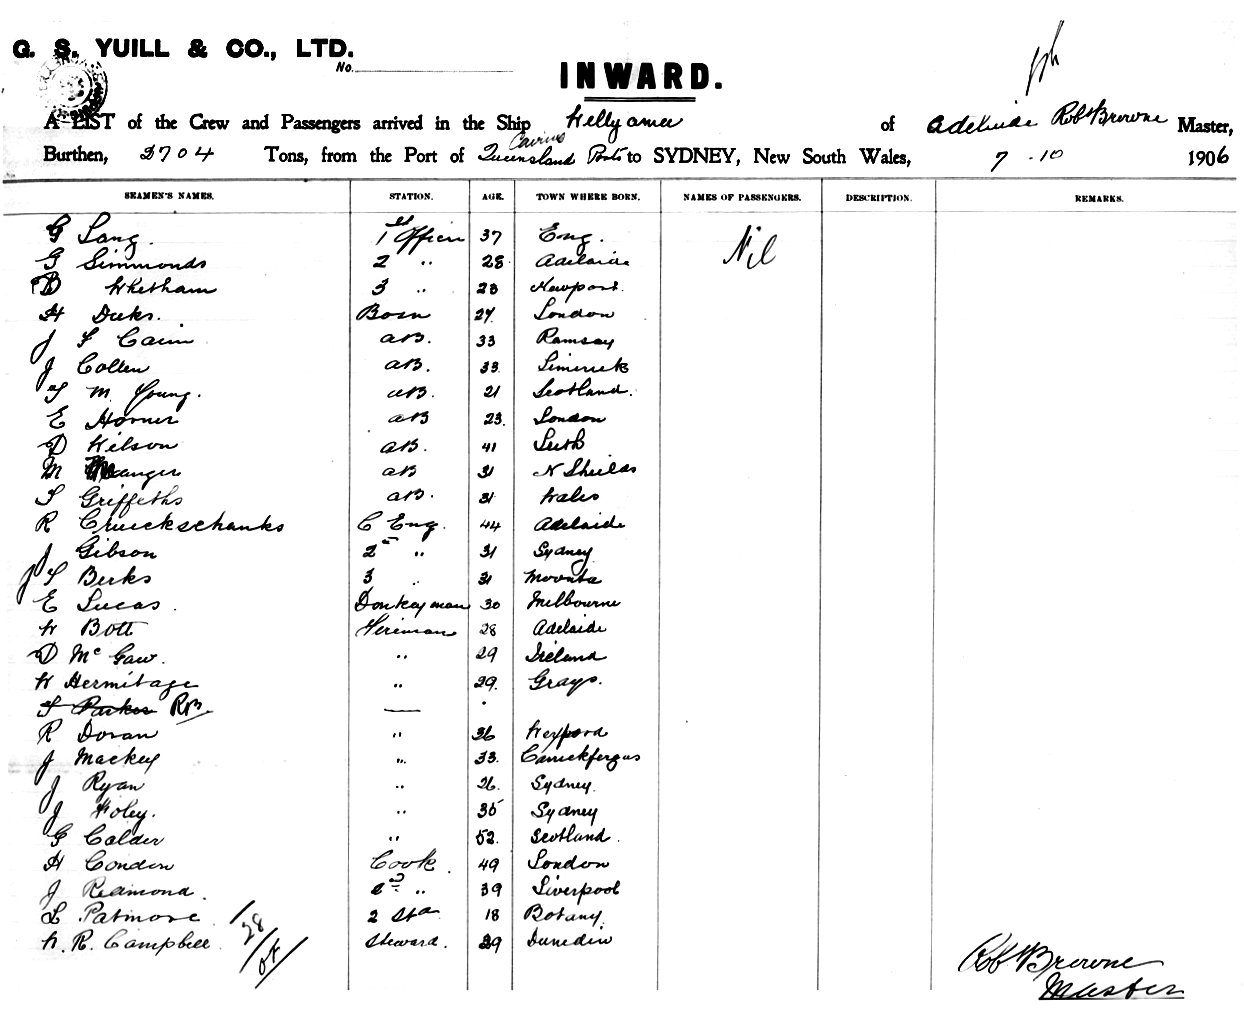 G. S. YUILL & CO., LTD.
No.
INWARD.
A LIST of the Crew and Passengers arrived in the Ship Wollyama of Adelaide Rob Browne Master,
Cairns
Burthen, 2704 Tons, from the Port of Queensland Ports to SYDNEY, New South Wales, 7 - 10 1906
SEAMEN'S NAMES. STATION. AGE. TOWN WHERE BORN. NAMES OF PASSENGERS. DESCRIPTION. REMARKS.
G Lang. 1st Officer 37 Eng. Nil
G Simmonds 2 " 28 Adelaide
D Whetham 3 " 23 Newport.
H Duks. Bosn 27 London
J S Cain aB. 33 Ramsay
J Collen aB. 33 Limerick
T M Young. aB. 21 Scotland.
E Horner aB 23. London
D Wilson aB. 41 Leith
M Manger aB 31 N Sheilds
T Griffeths aB. 31 Wales
R Cruickschanks C Eng. 44 Adelaide
J Gibson 2nd " 31 Sydney
J T Berks 3 " 31 Moonta
E Lucas. Donkeyman 30 Melbourne
W Bott Fireman 28 Adelaide
D Mc Gaw. " 29 Ireland
W Hermitage " 29. Grays.
T Parker RB
R Doran " 36 Wexford
J Mackey " 33. Carrickfergus
J Ryan " 26. Sydney
J Foley. " 35 Sydney
G Calder " 52. Scotland.
H Conden Cook. 49 London
J Redmond. 2nd " 39 Liverpool
L Patmore 2 Std 18 Botany
W. R. Campbell Steward. 39 Dunedin
28
Rob Browne
Master